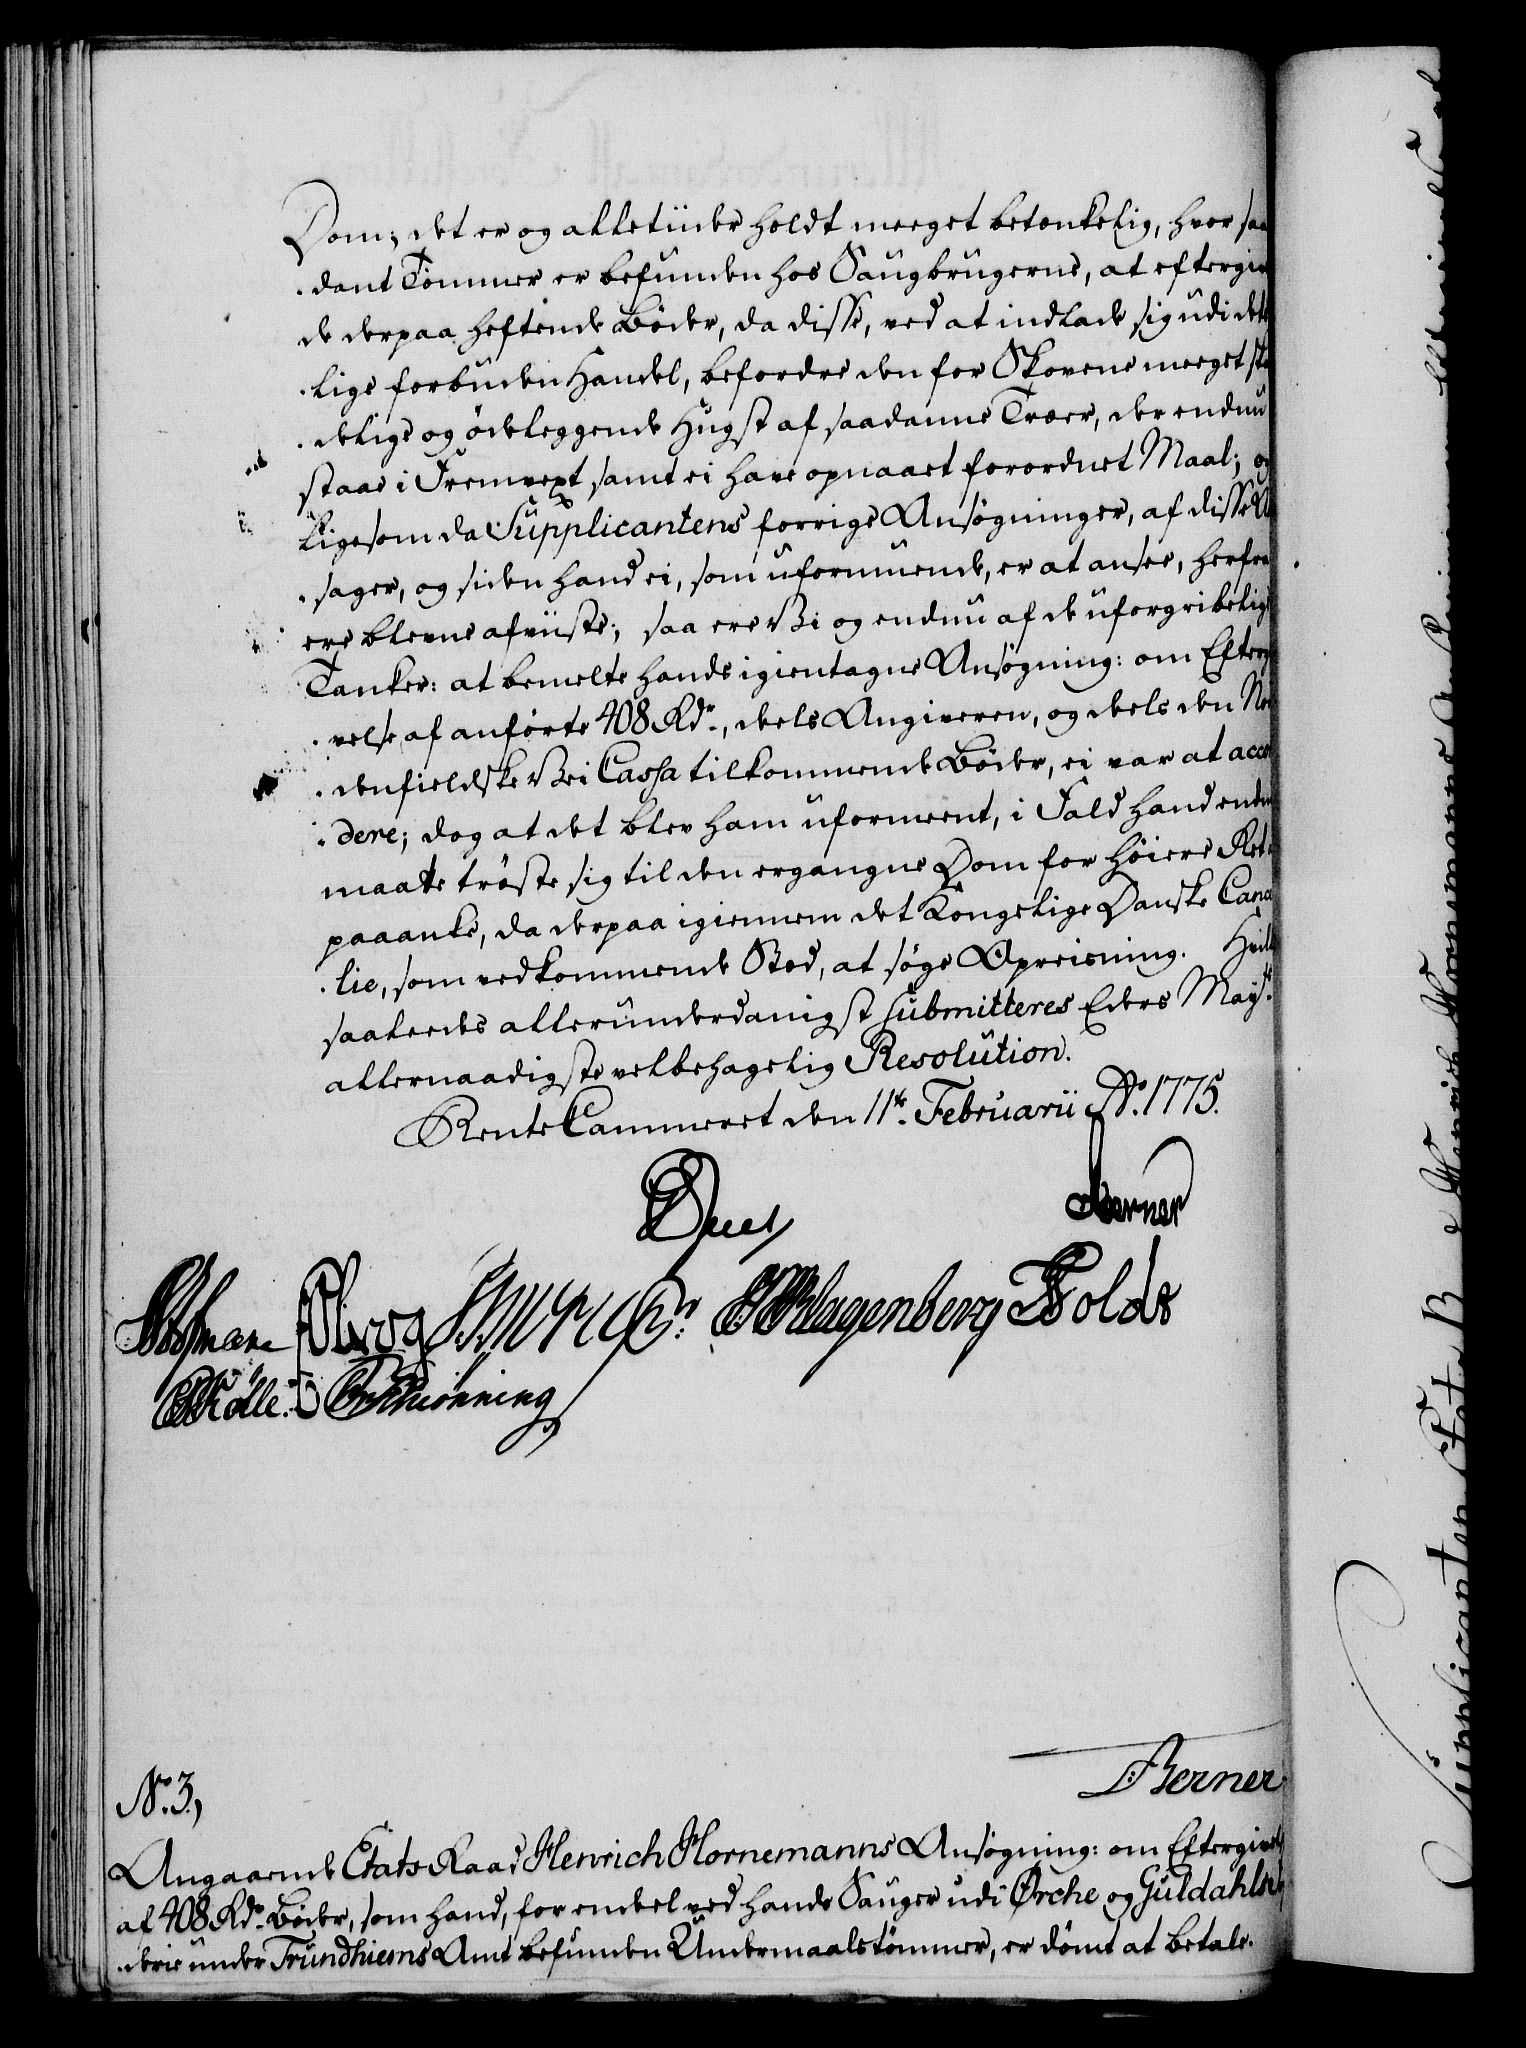 Dom; det er og alletiider holdt meeget betenkelig, hvor saa
dant Tömmer er befunden hos Saugbrugerne, at eftergiv
de derpaa heftende Bøder, da disse, ved at indlade sig udi dette
lige forbuden Handel, befordre den for Skovene meeget ska
delige og ödeleggende Hugst af saadanne Træer, der endnu
staae i Fremvext, samt ei have opnaaet forordnet Maal; og
ligesom da Supplicantens forrige Ansøgninger, af disse Aar
sager, og siden hand ei, som uformuende, er at ansee, herfra
ere blevne afviiste; saa ere Vi og endnu af de uforgribelige
Tanker: at bemelte hands igientagne Ansøgning: om Eftergi
velse af anförte 408 Rdr., deels Angiveren, og deels den Nor
denfieldske Vei Cassa tilkommende Bøder, ei var at acco
dere; dog at det blev ham uformeent, i Fald hand endnu
maatte trøste sig til den ergangne Dom for höiere Rett
paaanke, da derpaa igiennem det Kongelige Danske Canc
lie, som vedkommende Sted, at søge Opreisning. Hvilk
saaledes allerunderdanigst submitteres Eders Mayts.
allernaadigste velbehagelig Resolution.
RenteCammeret den 11te. Februarii Ao. 1775.
Berner
Klagenberg Holdt
Schiönning
Berner
No. 3,
Angaaende EtatsRaad Henrich Hornemanns Ansøgning: om Eftergivel
af 408 Rdr. Bøder, som hand, for endeel ved hands Sauger udi Ørche og Guldahls
derie under Trundhiems Amt befunden Undermaalstömmer, er dömt at betale.